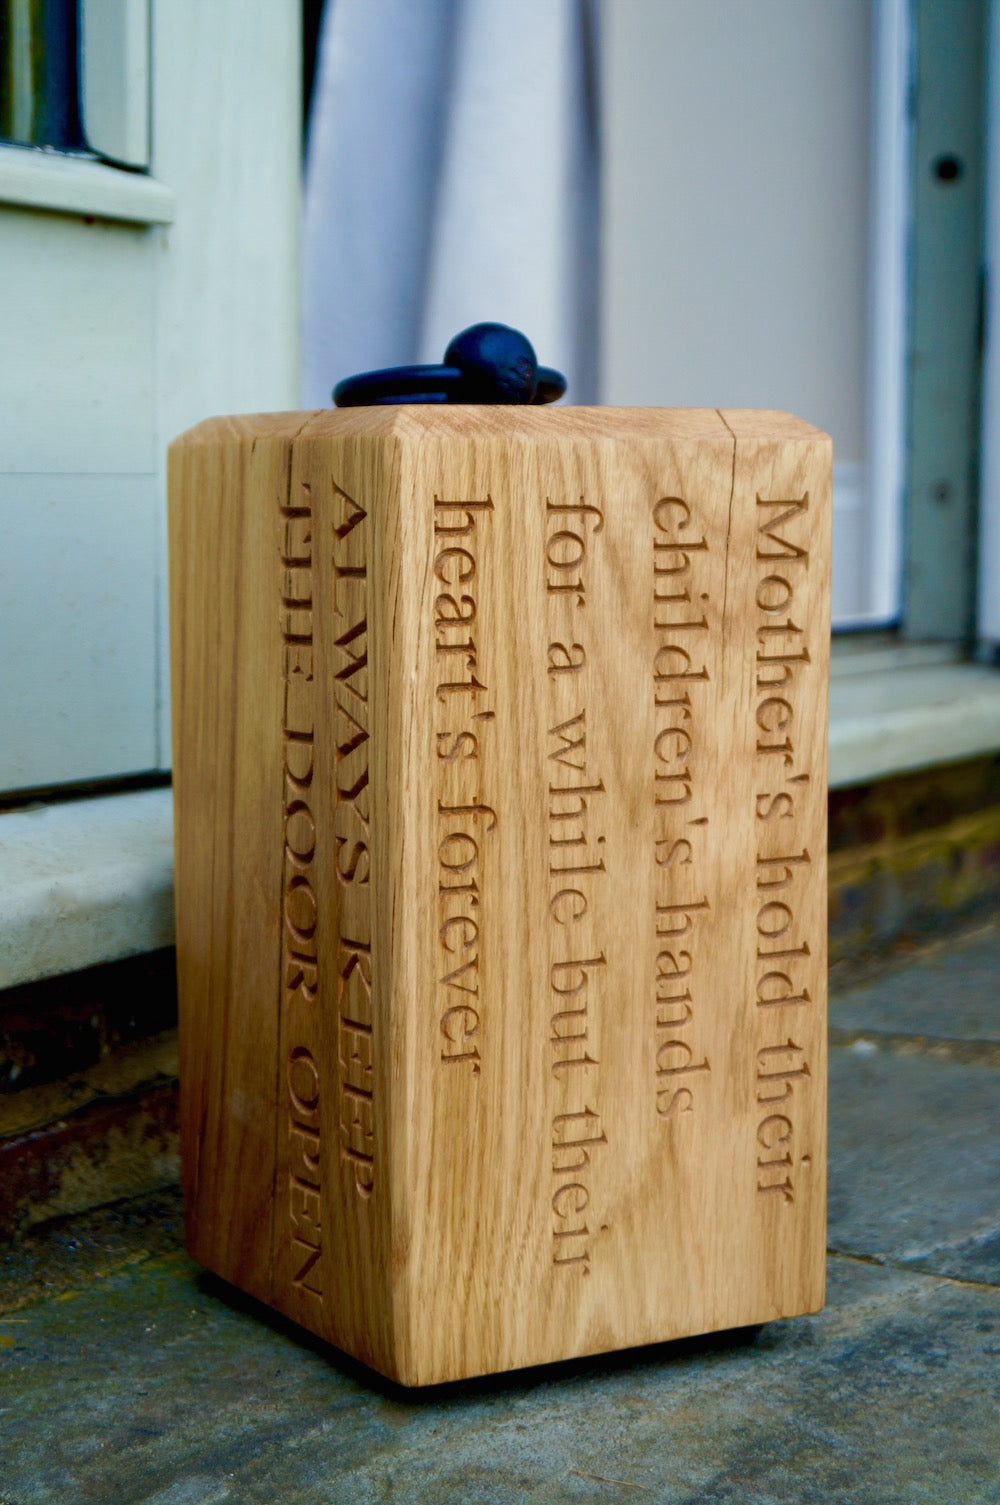 Mother's hold their
children's hands
for a while but their
heart's forever
ALWAYS KEEP
THE DOOR OPEN